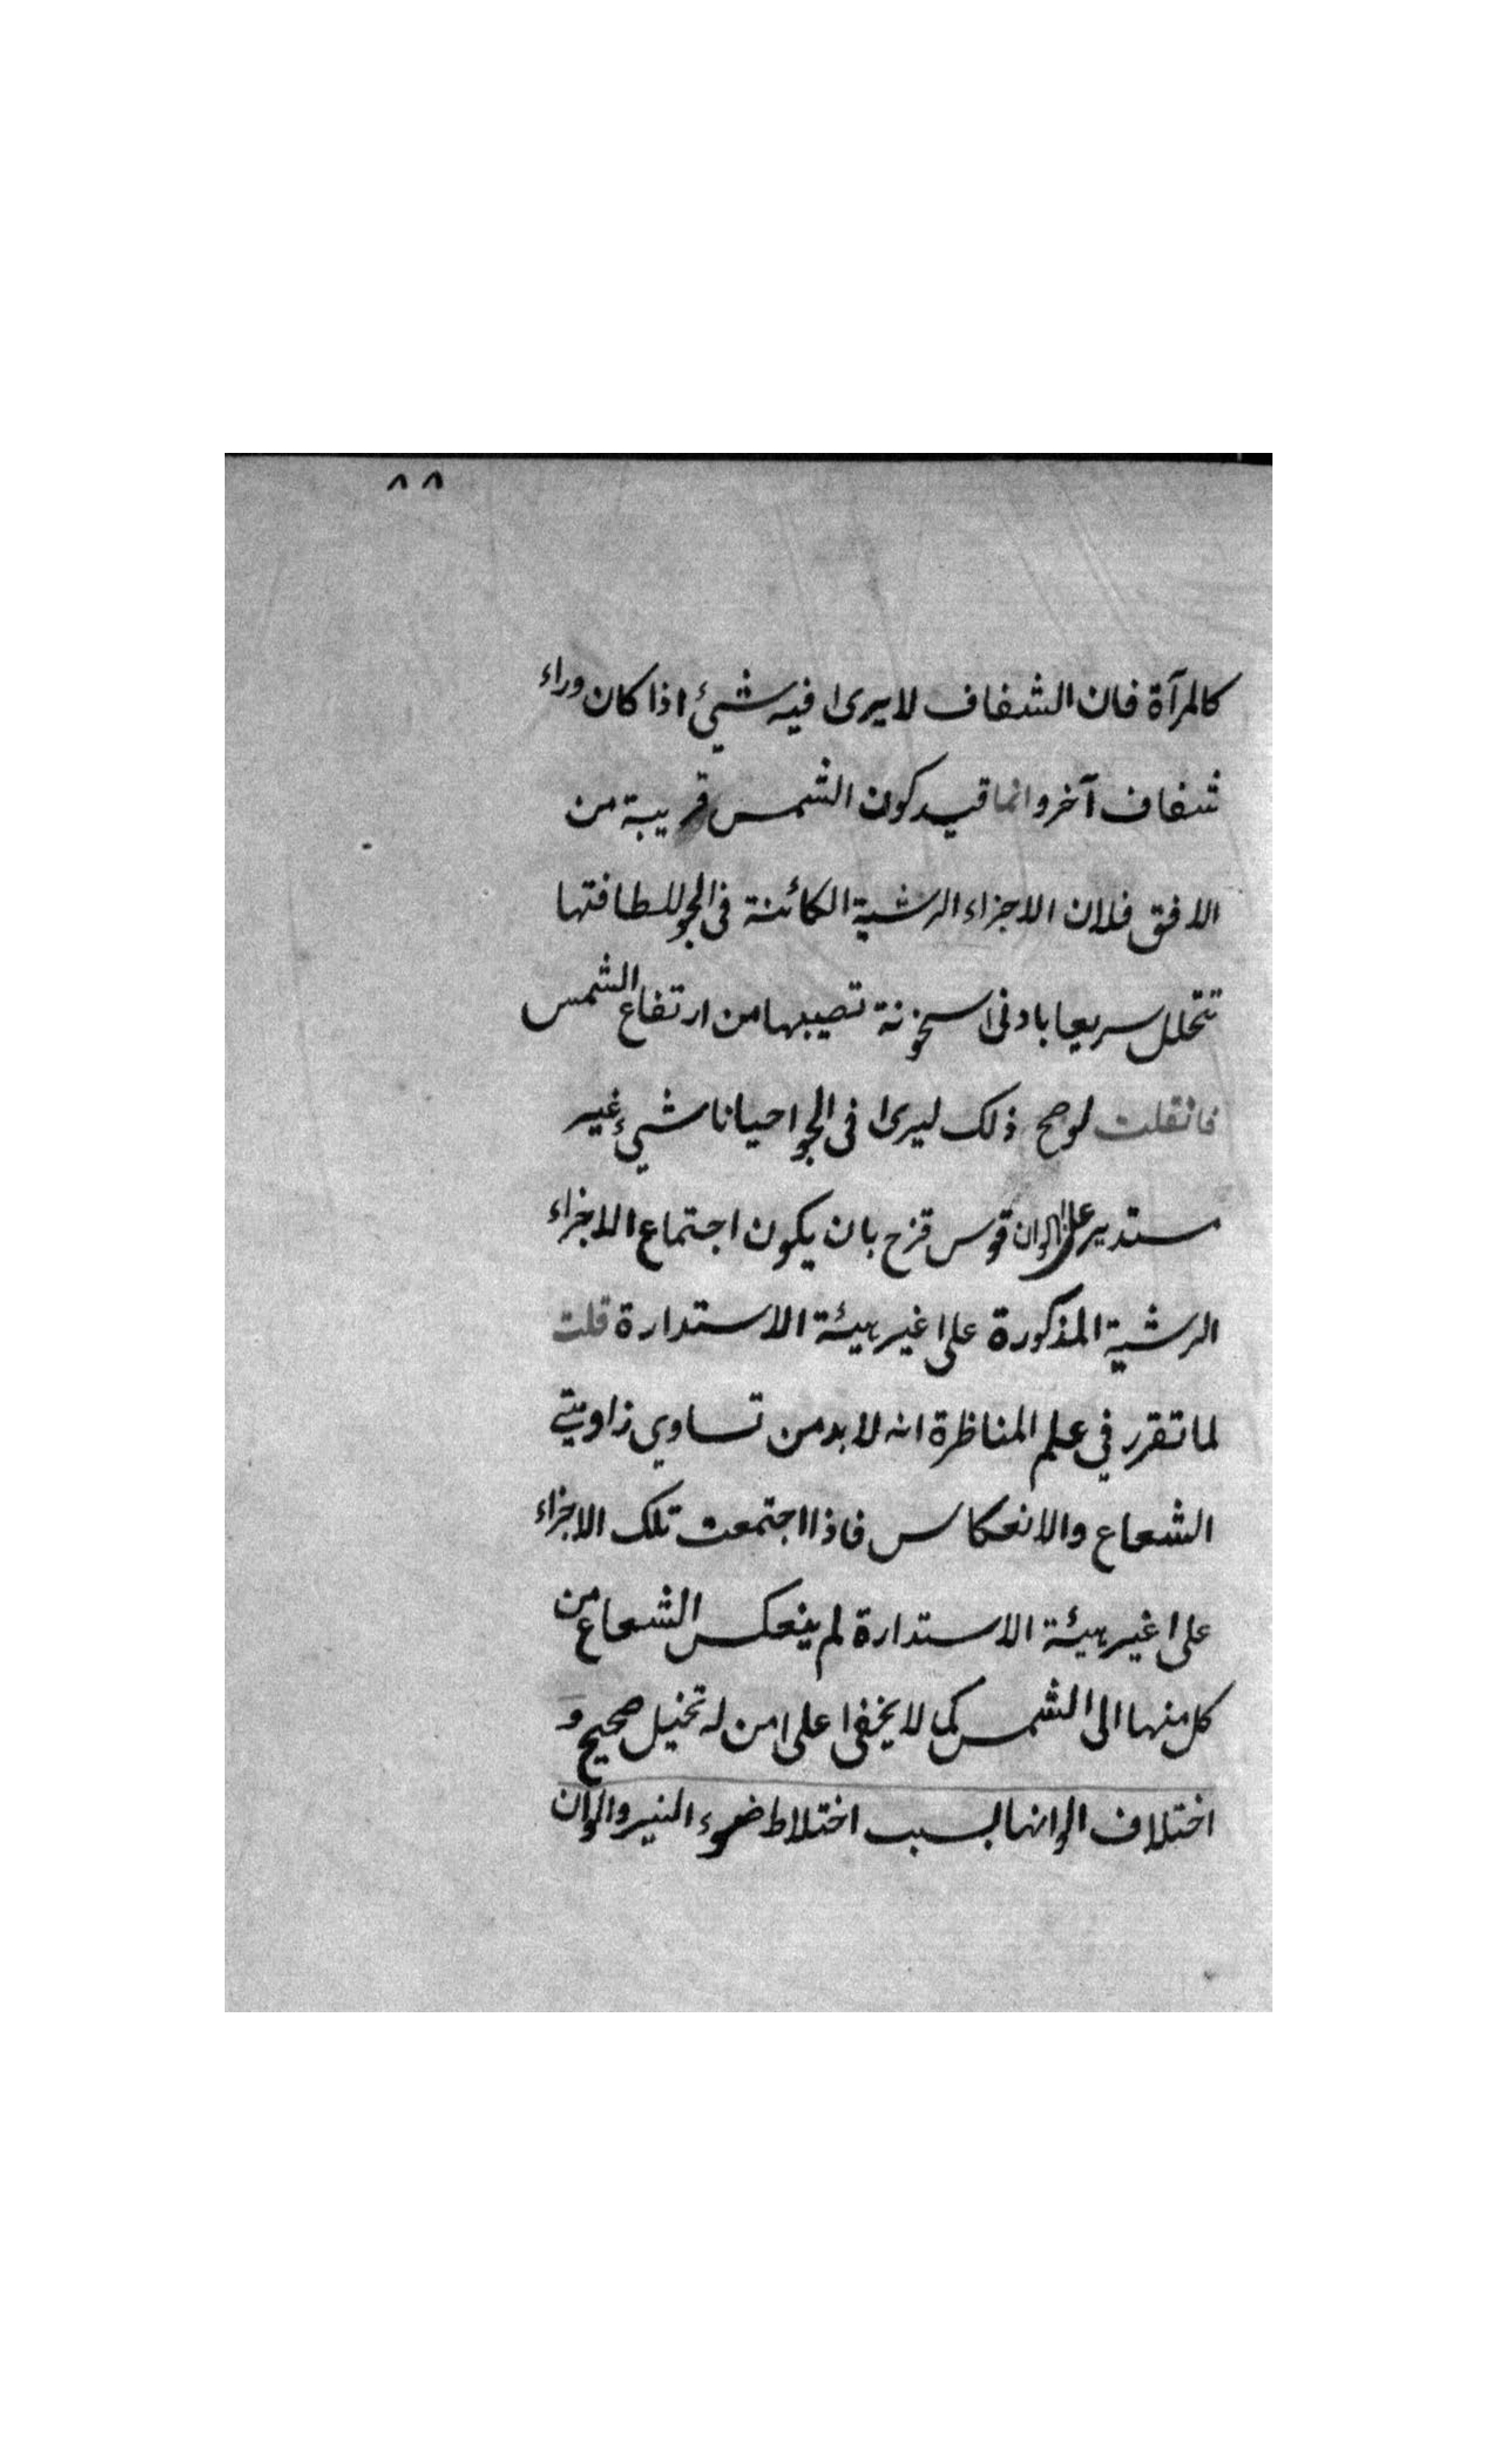 ٨٨
كالمرآة فان الشفاف لا يرى فيه شيئ اذا كان وراء
شفاف آخر وانما قيد كون الشمس قريبة من
الافق فلان الاجزاء الرشية الكائنة فى الجو للطافتها
تتحلل سريعا بادنى سخونة تصيبها من ارتفاع الشمس
فان قلت لو صح ذلك ليرى فى الجو احيانا شيئ غير
مستدير على الوان قوس قزح بان يكون اجتماع الاجزاء
الرشية المذكورة على غير هيئة الاستدارة قلت
لما تقرر في علم المناظرة انه لا بد من تساوي زاويتي
الشعاع والانعكاس فاذا اجتمعت تلك الاجزاء
على غير هيئة الاستدارة لم ينعكس الشعاع من
كل منها الى الشمس كما لا يخفى على من له تخيل صحيح و
اختلاف الوانها بسبب اختلاط ضوء النير والوان